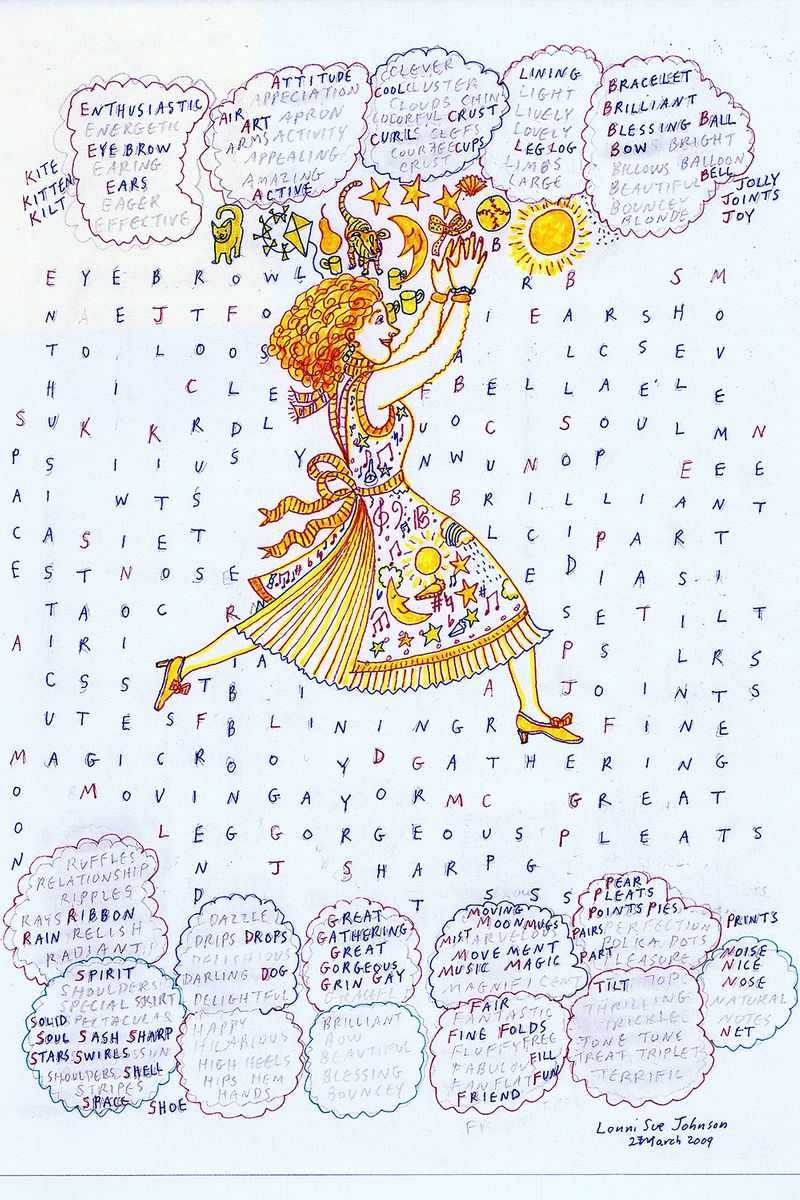 ENTHUSIASTIC
ENERGETIC
EYEBROW
EARING
EARS
EAGER
EFFECTIVE
KITE
KITTEN
KILT
ATTITUDE
APPECIATION
AIR ART APRON
ARMS ACTIVITY
APPEALING
AMAZING
ACTIVE
CLEVER
COOL CLUSTER
CLOUDS CHIN
COLORFUL CRUST
CURLS CLEFS
COURAGE CUPS
CRUST
LINING
LIGHT
LIVELY
LOVELY
LEG LOG
LIMBS
LARGE
BRACELET
BRILLIANT
BLESSING BALL
BOW BRIGHT
BILLOWS BALLOON
BELL
BEAUTIFUL
BOUNCEY
BLONDE
JOLLY
JOINTS
JOY
B
E Y E B R O W L R B S M
N A E J T F O I E A R S H O
T O L O O S A L C S E V
H I C L E F B E L L A E L E
S U K K R D L U O C S O U L M N
P S I I U S Y N W U N O P E E E
A I W T S B R I L L I A N T
C A S I E T L C I P A R T
E S T N O S E E D I A S I
T A O C R N S E T I L T
A I R I I A P S L R S
C S S T B I A J O I N T S
U T E S F B L I N I N G R F I N E
M A G I C R O O Y D G A T H E R I N G
O M O V I N G A Y O R M C G R E A T
O L E G G O R G E O U S P L E A T S
N N J S H A R P G
D T S S S
RUFFLES
RELATIONSHIP
RIPPLES
RAYS RIBBON
RAIN RELISH
RADIANT
SPIRIT
SHOULDERS
SPECIAL SKIRT
SOLID SPECTACULAR
SOUL SASH SHARP
STARS SWIRLS
SHOULDERS SHELL
STRIPES
SPACE SHOE
DAZZLE
DRIPS DROPS
DELISHIOUS
DARLING DOG
DELIGHTFUL
HAPPY
HILARIOUS
HIGH HEELS
HIPS HEM
HANDS
GREAT
GATHERING
GREAT
GORGEOUS
GRIN GAY
GRACEFUL
BRILLIANT
BOW
BEAUTIFUL
BLESSING
BOUNCEY
MOVING
MOON MUGS
MIST MARVELOUS
MOVEMENT
MUSIC MAGIC
MAGNIFICENT
FAIR
FANTASTIC
FINE FOLDS
FLUFFY FREE
FILL
FABULOUS
FAN FLAT FUN
FRIEND
PEAR
PLEATS
POINTS PIES
PAIRS PERFECTION
POLKA DOTS
PART PLEASURE
PRINTS
TILT TOP
THRILLING
TRICKLE
TONE TUNE
TREAT TRIPLET
TERRIFIC
NOISE
NICE
NOSE
NATURAL
NOTES
NET
Lonni Sue Johnson
27 March 2009